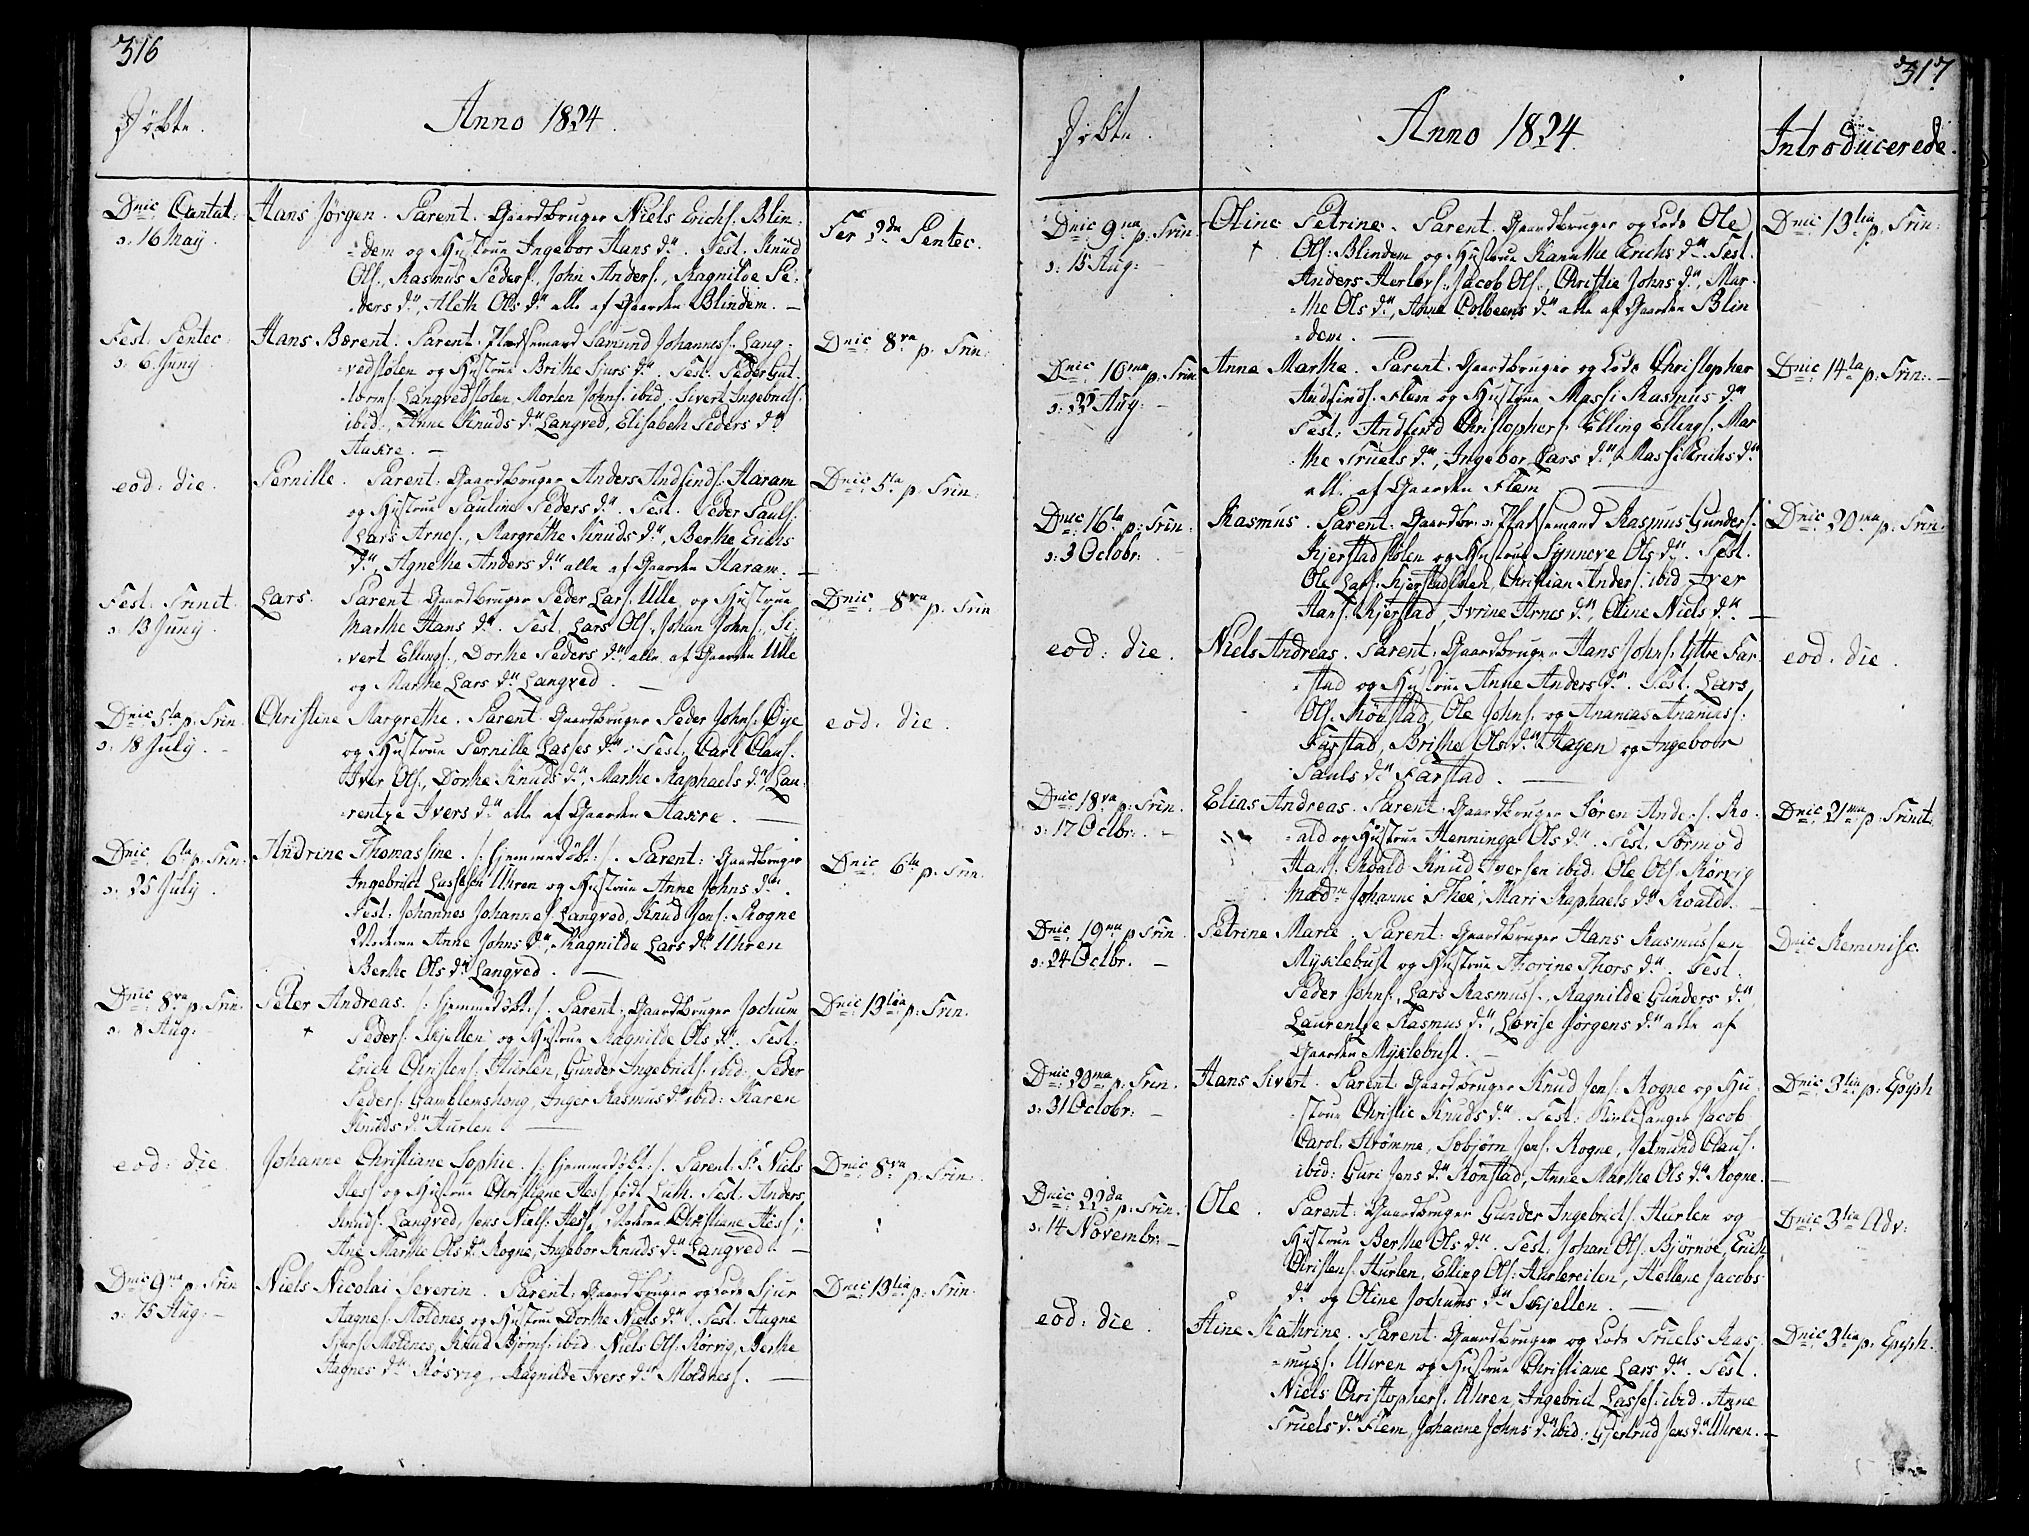 316
Døbte.
Anno 1824.
Dnic: Cantat:
ɔ: 16 May.
Hans Jørgen. Parent: Gaardbruger Niels Erichs: Blin-
dem og Hustrue Ingebor Hans d:r. Test. Knud
Ols:, Rasmus Peders:, John Anders:, Ragnilde Pe-
ders d:r, Aleth Ols d:r alle af Gaarden Blindem. —
Fer 2da Pentec.
Fest. Pentec:
ɔ: 6 Juny.
Hans Bærent. Parent. Pladsemand Samund Johannes: Lang-
vedstølen og Hustrue Brithe Sjurs d:r. Test. Peder Gut-
torms: Langvedstølen Morten Johns: ibid, Sivert Ingebrits:
ibid:, Anne Knuds d:r Langved, Elisabeth Peders d:r
Aakre. —
Dnic: 8va p: Trin:
eod: die.
Pernille. Parent: Gaardbruger Anders Andfinds: Haram
og Hustrue Pauline Peders d:r. Test. Peder Pauls:
Lars Arnes:, Margrethe Knuds d:r, Berthe Erichs
d:r, Agnethe Anders d:r alle af Gaarden Haram. —
Dnic: 5ta p: Trin:
Fest: Trinit.
ɔ: 13 Juny.
Lars. Parent: Gaardbruger Peder Lars: Ulle og Hustrue
Marthe Hans d:r. Test. Lars Ols:, Johan Johns:, Si-
vert Ellings:, Dorthe Peders d:r, alle af Gaarden Ulle
og Marthe Lars d:r Langved. —
Dnic: 8va p: Trin
Dnic 5ta p: Trin.
ɔ: 18 July. —
Christine Margrethe. Parent: Gaardbruger Peder Johns: Øye
og Hustrue Pernille Lasses d:r. Test. Carl Claus:
Iver Ols:, Dorthe Knuds d:r, Marthe Raphaels d:r, Lau-
rentze Ivers d:r alle af Gaarden Aakre. —
eod: die.
Dnic: 6ta p: Trin:
ɔ: 25 July.
Andrine Thomassine. /: hjemmedøbt :/. Parent: Gaardbruger
Ingebrict Lassesen Uhren og Hustrue Anne Johns d:r.
Test: Johannes Johannes: Langved, Knud Jens: Rogne
Moderen Anne Johns d:r, Ragnilde Lars d:r Uhren
Berthe Ols d:r Langved. —
Dnic: 6ta p: Trin.
Dnic: 8va p: Trin.
ɔ: 8 Aug: —
Peter Andreas. /: hjemmedøbt :/. Parent: Gaardbruger Jochum
+ Peders: Skjellen og Hustrue Ragnilde Ols d:r. Test:
Erich Christens: Hurlen, Gunder Ingebricts: ibid: Peder
Peders: Gamblemshoug, Inger Rasmus d:r ibid: Karen
Knuds d:r Hurlen —
Dnic: 13tia p: Trin.
eod: die.
Johanne Christiane Sophie. /: hjemmedøbt :/. Parent: Niels
Hess og Hustrue Christiane Hess født Luth. Test. Anders
Knuds: Langved, Jens Niels: Hess, Moderen Christiane Hess;
Ane Marthe Ols d:r Rogne, Ingebor Knuds d:r Langved. —
Dnic: 8va p: Trin.
Dnic: 9na p: Trin
ɔ: 15 Aug: —
Niels Nicolai Severin. Parent: Gaardbruger og Lods Sjur
Aagnes: Moldnes og Hustrue Dorthe Niels d:r. Test. Aagne
Sjurs: Moldnes, Knud Bjørns: ibid. Niels Ols: Rørvig, Berthe
Aagnes d:r Røsvig, Ragnilde Ivers d:r Moldness. —
Dnic: 13tia p: Trin.
317
Døbte.
Anno 1824.
Introducerede.
Dnic: 9na p: Trin
ɔ: 15 Aug: —
Oline Petrine. Parent: Gaardbruger og Lods Ole
+ Ols: Blindem og Hustrue Karethe Erichs d:r Test.
Anders Herlovs:, Jacob Ols:, Christie Johns d:r, Mar-
the Ols d:r, Anne Colbeens d:r alle af Gaarden Blin
dem. —
Dnic: 13tia p: Trin:
Dnic: 10ma p: Trin
ɔ: 22 Aug: —
Anne Marthe. Parent: Gaardbruger og Lods Christopher
Andfinds: Flem og Hustrue Massi Rasmus d:r
Test: Andfind Christophers: Elling Ellings: Mar-
the Truels d:r, Ingebor Lars d:r, Massi Erichs d:r
alle af Gaarden Flem —
Dnic: 14ta p: Trin: —
Dnic: 16ta p: Trin:
ɔ: 3 Octobr: .
Rasmus. Parent: Gaardbr: ɔ: Pladsemand Rasmus Gunders:
Kjerstadstølen og Hustrue Synneve Ols d:r. Test.
Ole Lars: Kjerstadstølen, Christian Anders: ibid, Iver
Hans: Kjerstad, Ivrine Arnes d:r, Oline Niels d:r —
Dnic: 20ma p: Trin.
eod: die.
Niels Andreas. Parent: Gaardbruger Hans Johns: Yttre Far-
stad og Hustrue Anne Anders d:r. Test. Lars
Ols: Rønstad, Ole Johns: og Ananias Ananiass:
Farstad, Brithe Ols d:r Hagen og Ingeboer
Pauls d:r Farstad. —
eod: die.
Dnic: 18va p: Trin.
ɔ: 17 Octbr: —
Elias Andreas. Parent: Gaardbruger Søren Anders: Ro-
ald og Hustrue Henninga Ols d:r. Test. Tormod
Hans: Roald Knud Iversen ibid: Ole Ols: Rørvig
Mad:m Johanne Thee, Mari Raphaels d:r Roald. —
Dnic: 21ma p: Trinit:
Dnic: 19na p Trin
ɔ: 24 Octbr. —
Petrine Marie. Parent: Gaardbruger Hans Rasmussen
Myklebust og Hustrue Thorine Thors d:r. Test:
Peder Johns:, Lars Rasmus:, Ragnilde Gunders d:r,
Laurentze Rasmus d:r, Lovise Jørgens d:r alle af
Gaarden Myklebust. —
Dnic Reminisc:
Dnic: 20ma p: Trin.
ɔ: 31 Octobr: —
Hans Sivert. Parent: Gaardbruger Knud Jens: Rogne og Hu-
strue Christie Knuds d:r. Test: Kirkesanger Jacob
Carol: Strømme, Sebjørn Jens: Rogne, Jetmund Claus:
ibid: Guri Jens d:r Rønstad, Anne Marthe Ols d:r Rogne. —
Dnic: 3tia p: Epiph
Dnic: 22da p: Trin.
ɔ: 14 Novembr: —
Ole. Parent: Gaardbruger Gunder Ingebricts: Hurlen og
Hustrue Berthe Ols d:r. Test. Johan Ols: Bjørnøe, Erich
Christens: Hurlen, Elling Ols: Hurlereiten, Hellene Jacobs
d:r og Oline Jochums d:r Skjellen. —
Dnic: 3tia Adv:
eod: die.
Stine Kathrine. Parent: Gaardbruger og Lods Truels Ras-
muss: Uhren og Hustrue Christiane Lars d:r. Test.
Niels Christophers: Uhren, Ingebrict Lasses: ibid. Anne
Truels d:r Flem, Johanne Johns d:r ibid: Gjertrud Jens d:r Uhren. —
Dnic: 3tia p: Epiph.